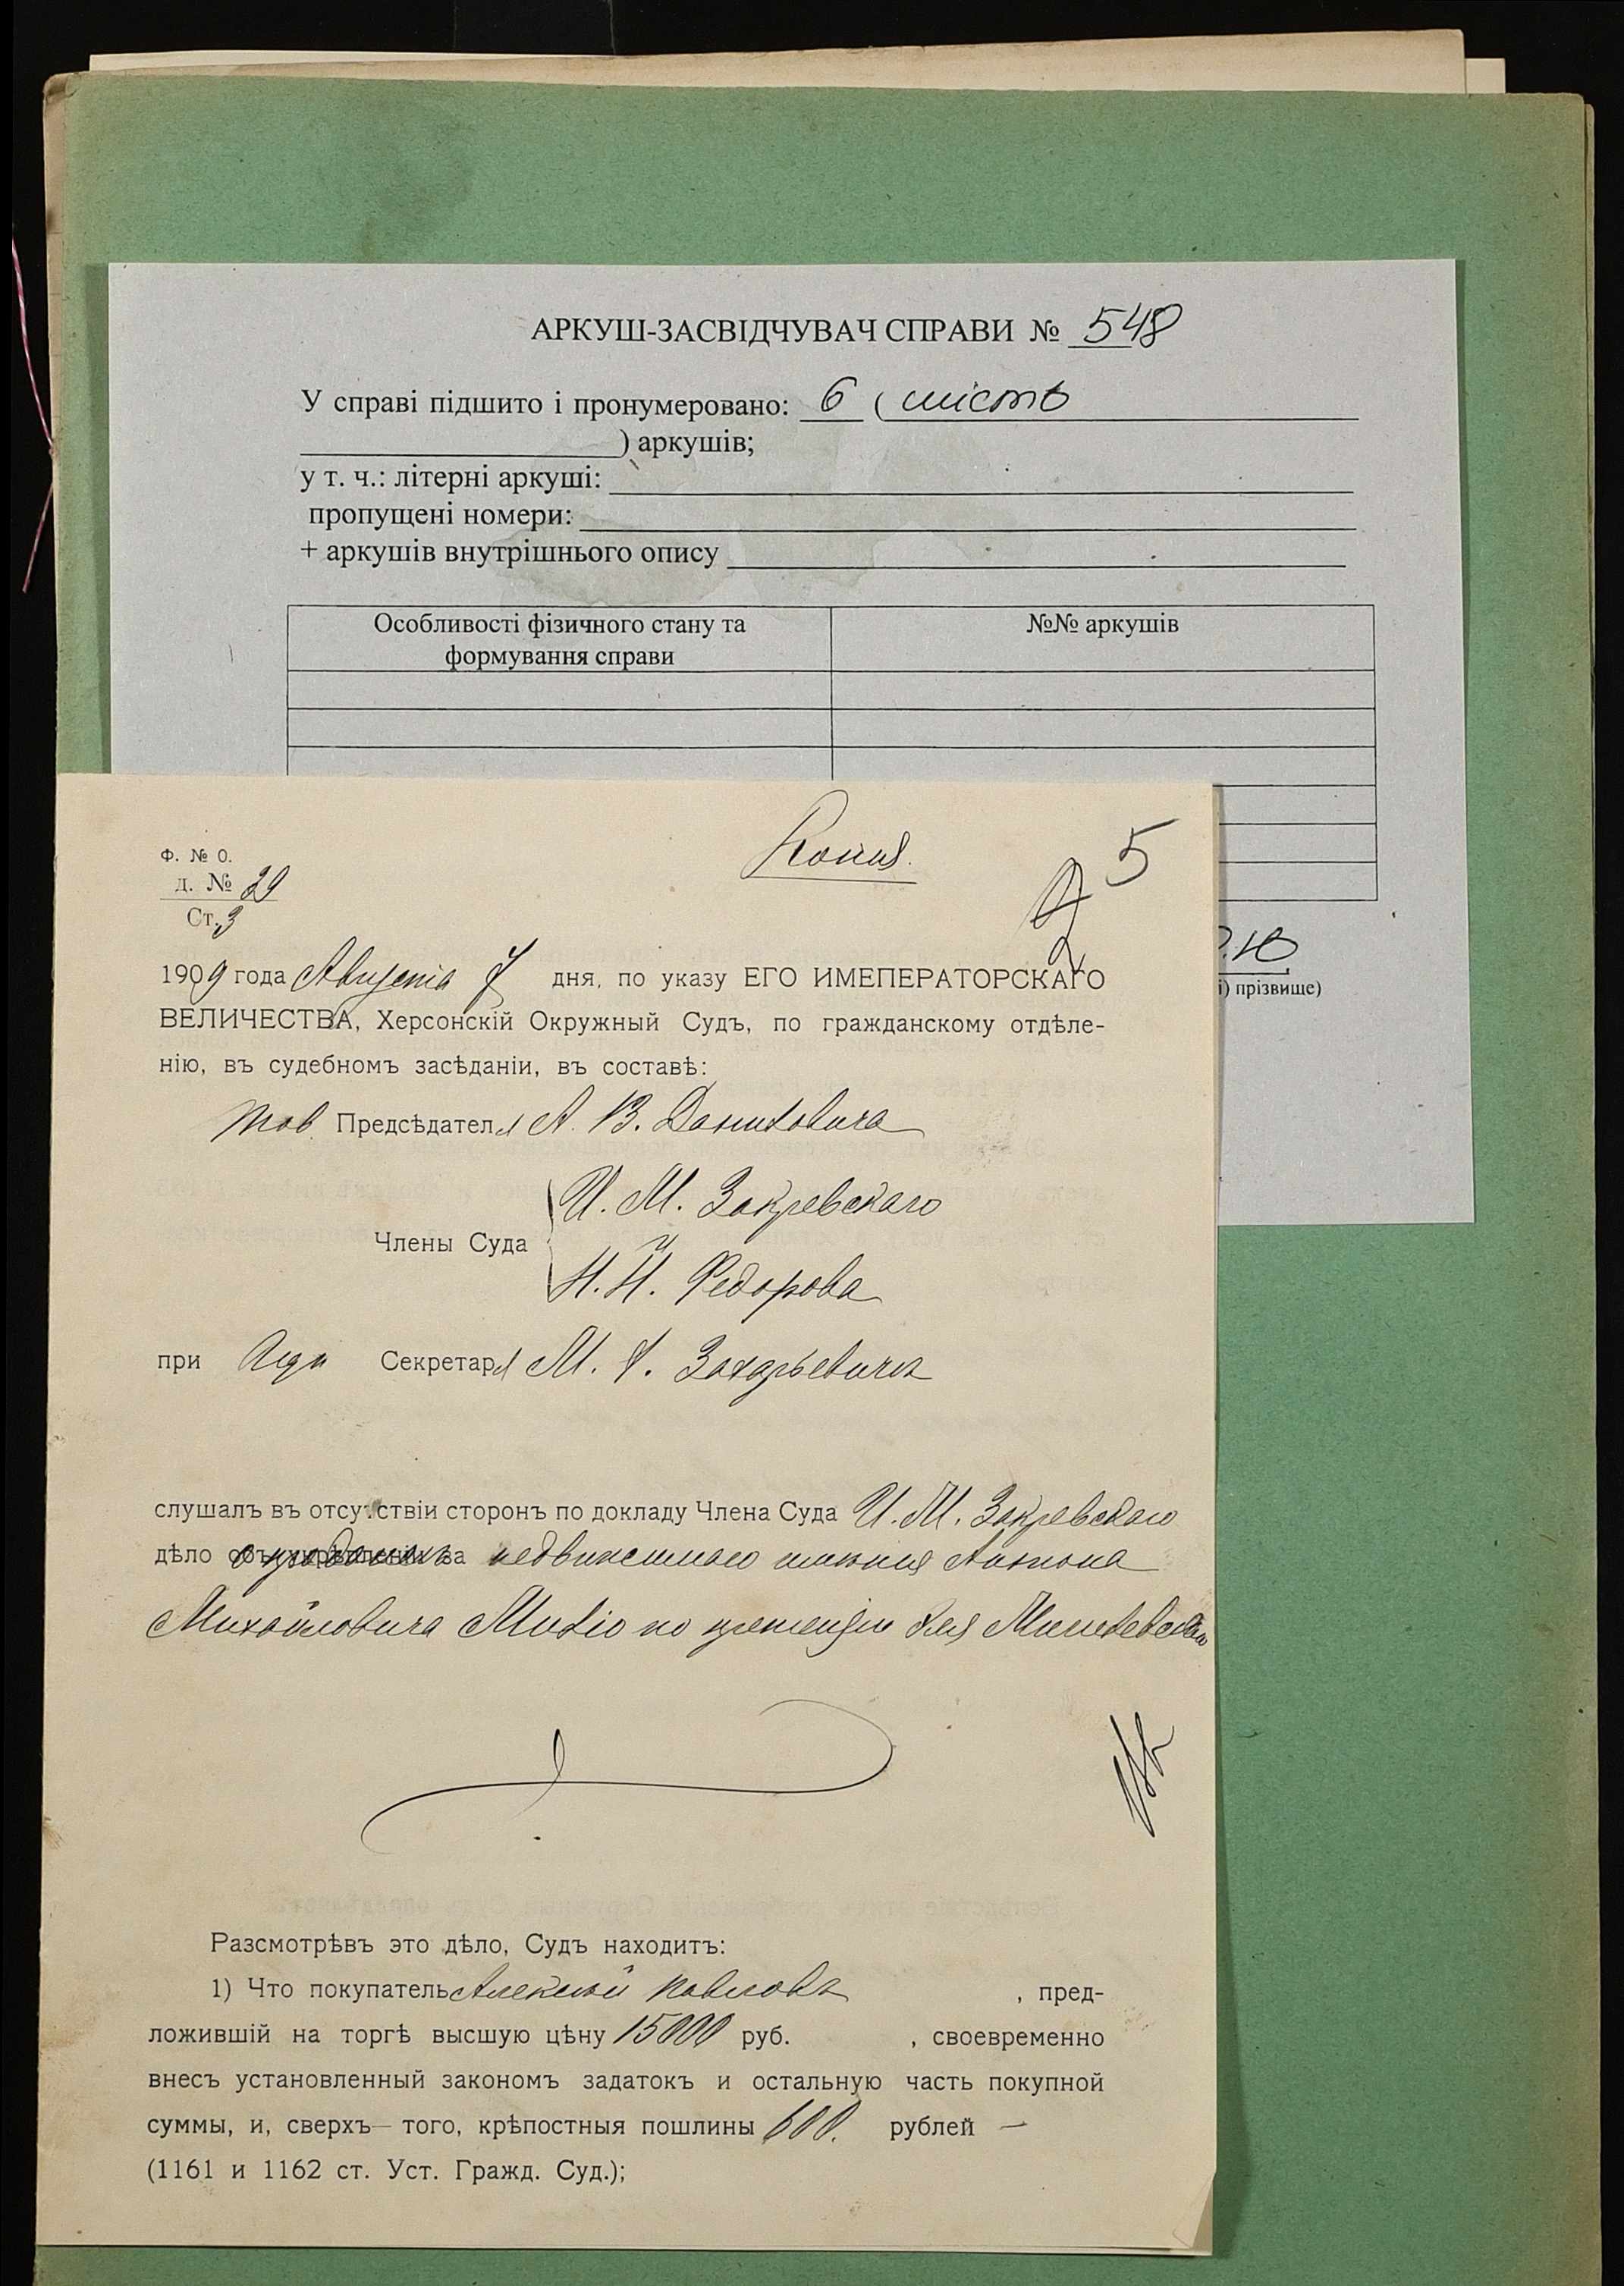 АРКУШ-ЗАСВІДЧУВАЧ СПРАВИ № 548
У справі підшито і пронумеровано: 6 ( шість
) аркушів;
у т. ч.: літерні аркуші:
пропущені номери:
+ аркушів внутрішнього опису
Особливості фізичного стану та
формування справи
№№ аркушів
і) прізвище)
Копия.
5
Ф. № О.
д. № 29
Ст. 3
1909 года Августа 7 дня, по указу ЕГО ИМЕПЕРАТОРСКАГО
ВЕЛИЧЕСТВА, Херсонскій Окружный Судъ, по гражданскому отдѣле-
нію, въ судебномъ засѣданіи, въ составѣ:
Тов. Предсѣдателя А. В.
Члены Суда
И. М. Закревскаго
Н. Н. Федорова
при Секретаря М. Захарьевича
слушалъ въ отсутствіи сторонъ по докладу Члена Суда И. М. Закревскаго
дѣло недвижимаго имѣнія Антона
Михайловича по претензіи
Разсмотрѣвъ это дѣло, Судъ находитъ:
1) Что покупатель Алексѣй Павловъ , пред-
ложившій на торгѣ высшую цѣну 15000 руб. , своевременно
внесъ установленный закономъ задатокъ и остальную часть покупной
суммы, и, сверхъ— того, крѣпостныя пошлины 600. рублей —
(1161 и 1162 ст. Уст. Гражд. Суд.);